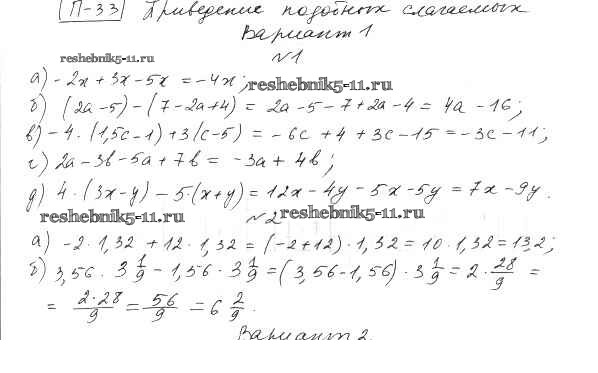 П-33 Приведение подобных слагаемых
Вариант 1
reshebnik5-11.ru №1
а) -2x + 3x - 5x = -4x; reshebnik5-11.ru
б) (2a - 5) - (7 - 2a + 4) = 2a - 5 - 7 + 2a - 4 = 4a - 16;
в) -4 · (1,5c - 1) + 3(c - 5) = -6c + 4 + 3c - 15 = -3c - 11;
г) 2a - 3b - 5a + 7b = -3a + 4b;
д) 4 · (3x - y) - 5 · (x + y) = 12x - 4y - 5x - 5y = 7x - 9y.
reshebnik5-11.ru №2 reshebnik5-11.ru
а) -2 · 1,32 + 12 · 1,32 = (-2 + 12) · 1,32 = 10 · 1,32 = 13,2;
б) 3,56 · 3 1/9 - 1,56 · 3 1/9 = (3,56 - 1,56) · 3 1/9 = 2 · 28/9 =
= 2·28/9 = 56/9 = 6 2/9.
Вариант 2.